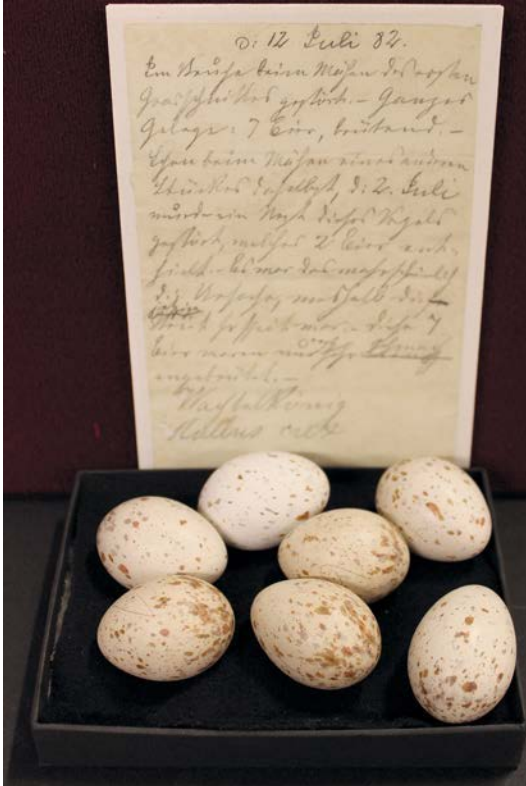 D: 12 Juli 82.
Am Neufhe beim Mähen des ersten
Grasschnittes gestört. – Ganzes
Gelege: 7 Eier, brütend. –
Schon beim Mähen eines andern
Stückes daselbst, d: 2. Juli
wurde ein Nest dieses Vogels
gestört, welches 2 Eier ent-
hielt. – Es war das wahrscheinlich
die Ursache, weshalb die
Brut so spät war. – Diese 7
Eier waren
angebrütet. –
Wachtelkönig
Rallus crex